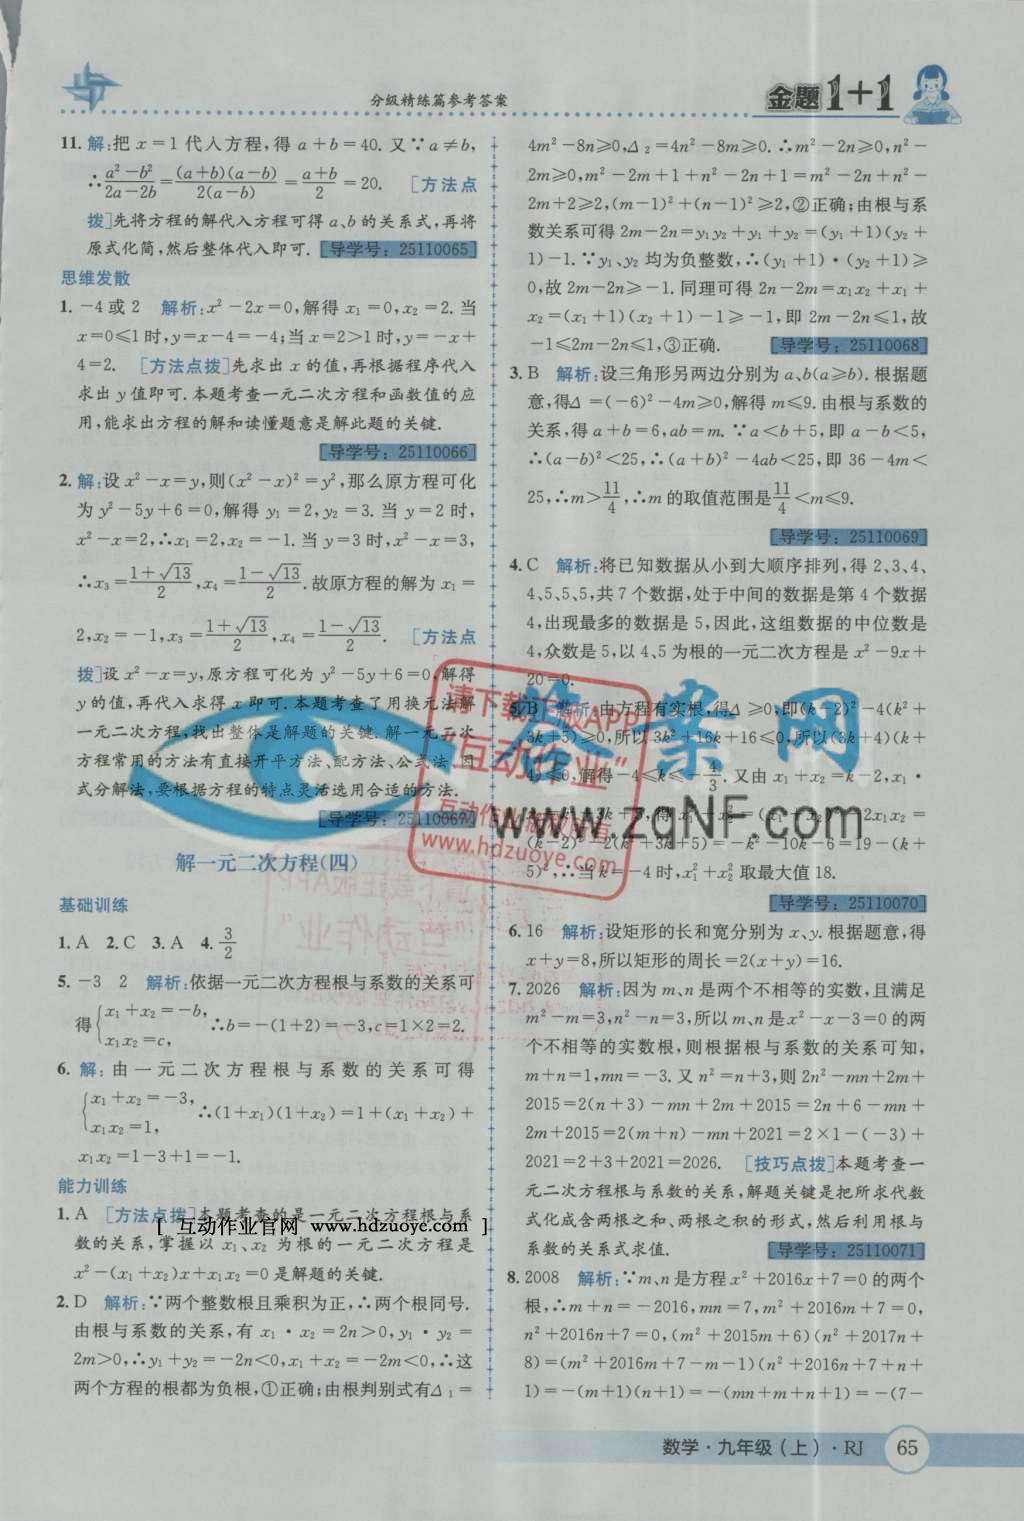 分级精练篇参考答案
金题1+1
11. 解:把 x=1 代入方程,得 a+b=40. 又∵a≠b,
∴(a²-b²)/(2a-2b)=(a+b)(a-b)/2(a-b)=(a+b)/2=20. [方法点
拨]先将方程的解代入方程可得 a、b 的关系式,再将
原式化简,然后整体代入即可. 导学号:25110065
思维发散
1. -4或2 解析:x²-2x=0,解得 x₁=0,x₂=2. 当
x=0≤1时,y=x-4=-4;当x=2>1时,y=-x+
4=2. [方法点拨]先求出 x 的值,再根据程序代入
求出 y 值即可. 本题考查一元二次方程和函数值的应
用,能求出方程的解和读懂题意是解此题的关键.
导学号:25110066
2. 解:设 x²-x=y,则(x²-x)²=y²,那么原方程可化
为 y²-5y+6=0,解得 y₁=2,y₂=3. 当 y=2 时,
x²-x=2,∴x₁=2,x₂=-1. 当 y=3 时,x²-x=3,
∴x₃=(1+√13)/2,x₄=(1-√13)/2. 故原方程的解为 x₁=
2,x₂=-1,x₃=(1+√13)/2,x₄=(1-√13)/2. [方法点
拨]设 x²-x=y,原方程可化为 y²-5y+6=0,解得
y 的值,再代入求得 x 即可. 本题考查了用换元法解
一元二次方程,找出整体是解题的关键. 解一元二次
方程常用的方法有直接开平方法、配方法、公式法、因
式分解法,要根据方程的特点灵活选用合适的方法.
导学号:25110067
解一元二次方程(四)
基础训练
1. A 2. C 3. A 4. 3/2
5. -3 2 解析:依据一元二次方程根与系数的关系可
得{x₁+x₂=-b, x₁x₂=c, ∴b=-(1+2)=-3,c=1×2=2.
6. 解:由一元二次方程根与系数的关系可得
{x₁+x₂=-3, x₁x₂=1, ∴(1+x₁)(1+x₂)=1+(x₁+x₂)+
x₁x₂=1-3+1=-1.
能力训练
1. A [方法点拨]本题考查的是一元二次方程根与系
[ 互动作业官网 www.hdzuoye.com ]
数的关系,掌握以 x₁、x₂ 为根的一元二次方程是
x²-(x₁+x₂)x+x₁x₂=0是解题的关键.
2. D 解析:∵两个整数根且乘积为正,∴两个根同号.
由根与系数的关系,有 x₁·x₂=2n>0,y₁·y₂=
2m>0,∴y₁+y₂=-2n<0,x₁+x₂=-2m<0,∴这
两个方程的根都为负根,①正确;由根判别式有Δ₁=
4m²-8n≥0,Δ₂=4n²-8m≥0. ∴m²-2n≥0,n²-
2m≥0,m²-2m+1+n²-2n+1=m²-2n+n²-
2m+2≥2,(m-1)²+(n-1)²≥2,②正确;由根与系
数关系可得 2m-2n=y₁y₂+y₁+y₂=(y₁+1)(y₂+
1)-1. ∵y₁、y₂ 均为负整数,∴(y₁+1)·(y₂+1)≥
0,故 2m-2n≥-1. 同理可得 2n-2m=x₁x₂+x₁+
x₂=(x₁+1)(x₂+1)-1≥-1,即 2m-2n≤1,故
-1≤2m-2n≤1,③正确. 导学号:25110068
3. B 解析:设三角形另两边分别为 a、b(a≥b). 根据题
意,得Δ=(-6)²-4m≥0,解得 m≤9. 由根与系数的
关系,得 a+b=6,ab=m. ∵a<b+5,即 a-b<5,
∴(a-b)²<25,∴(a+b)²-4ab<25,即 36-4m<
25,∴m>11/4,∴m 的取值范围是11/4<m≤9.
导学号:25110069
4. C 解析:将已知数据从小到大顺序排列,得 2、3、4、
4、5、5、5,共 7 个数据,处于中间的数据是第 4 个数据
4,出现最多的数据是 5,因此,这组数据的中位数是
4,众数是 5,以 4、5 为根的一元二次方程是 x²-9x+
20=0.
5. B 解析:由方程有实根,得Δ≥0,即(k-2)²-4(k²+
3k+5)≥0,所以 3k²+16k+16≤0,所以(3k+4)(k+
4)≤0,解得-4≤k≤-/3. 又由 x₁+x₂=k-2,x₁·
x₂=k²+3k+5,得 x₁²+x₂²=(x₁+x₂)²-2x₁x₂=
(k-2)²-2(k²+3k+5)=-k²-10k-6=19-(k+
5)²,∴当 k=-4时,x₁²+x₂² 取最大值 18.
导学号:25110070
6. 16 解析:设矩形的长和宽分别为 x、y. 根据题意,得
x+y=8,所以矩形的周长=2(x+y)=16.
7. 2026 解析:因为 m、n 是两个不相等的实数,且满足
m²-m=3,n²-n=3,所以 m、n 是 x²-x-3=0 的两
个不相等的实数根,则根据根与系数的关系可知,
m+n=1,mn=-3. 又 n²=n+3,则 2n²-mn+2m+
2015=2(n+3)-mn+2m+2015=2n+6-mn+
2m+2015=2(m+n)-mn+2021=2×1-(-3)+
2021=2+3+2021=2026. [技巧点拨]本题考查一
元二次方程根与系数的关系,解题关键是把所求代数
式化成含两根之和、两根之积的形式,然后利用根与
系数的关系式求值. 导学号:25110071
8. 2008 解析:∵m、n 是方程 x²+2016x+7=0 的两个
根,∴m+n=-2016,mn=7,m²+2016m+7=0,
n²+2016n+7=0,(m²+2015m+6)(n²+2017n+
8)=(m²+2016m+7-m-1)(n²+2016n+7+n+
1)=-(m+1)(n+1)=-(mn+m+n+1)=-(7-
请下载正版APP
"互动作业"
互动作业 版权所有
http://www.hdzuoye.com
答案网
www.zqNF.com
数学·九年级(上)·RJ 65